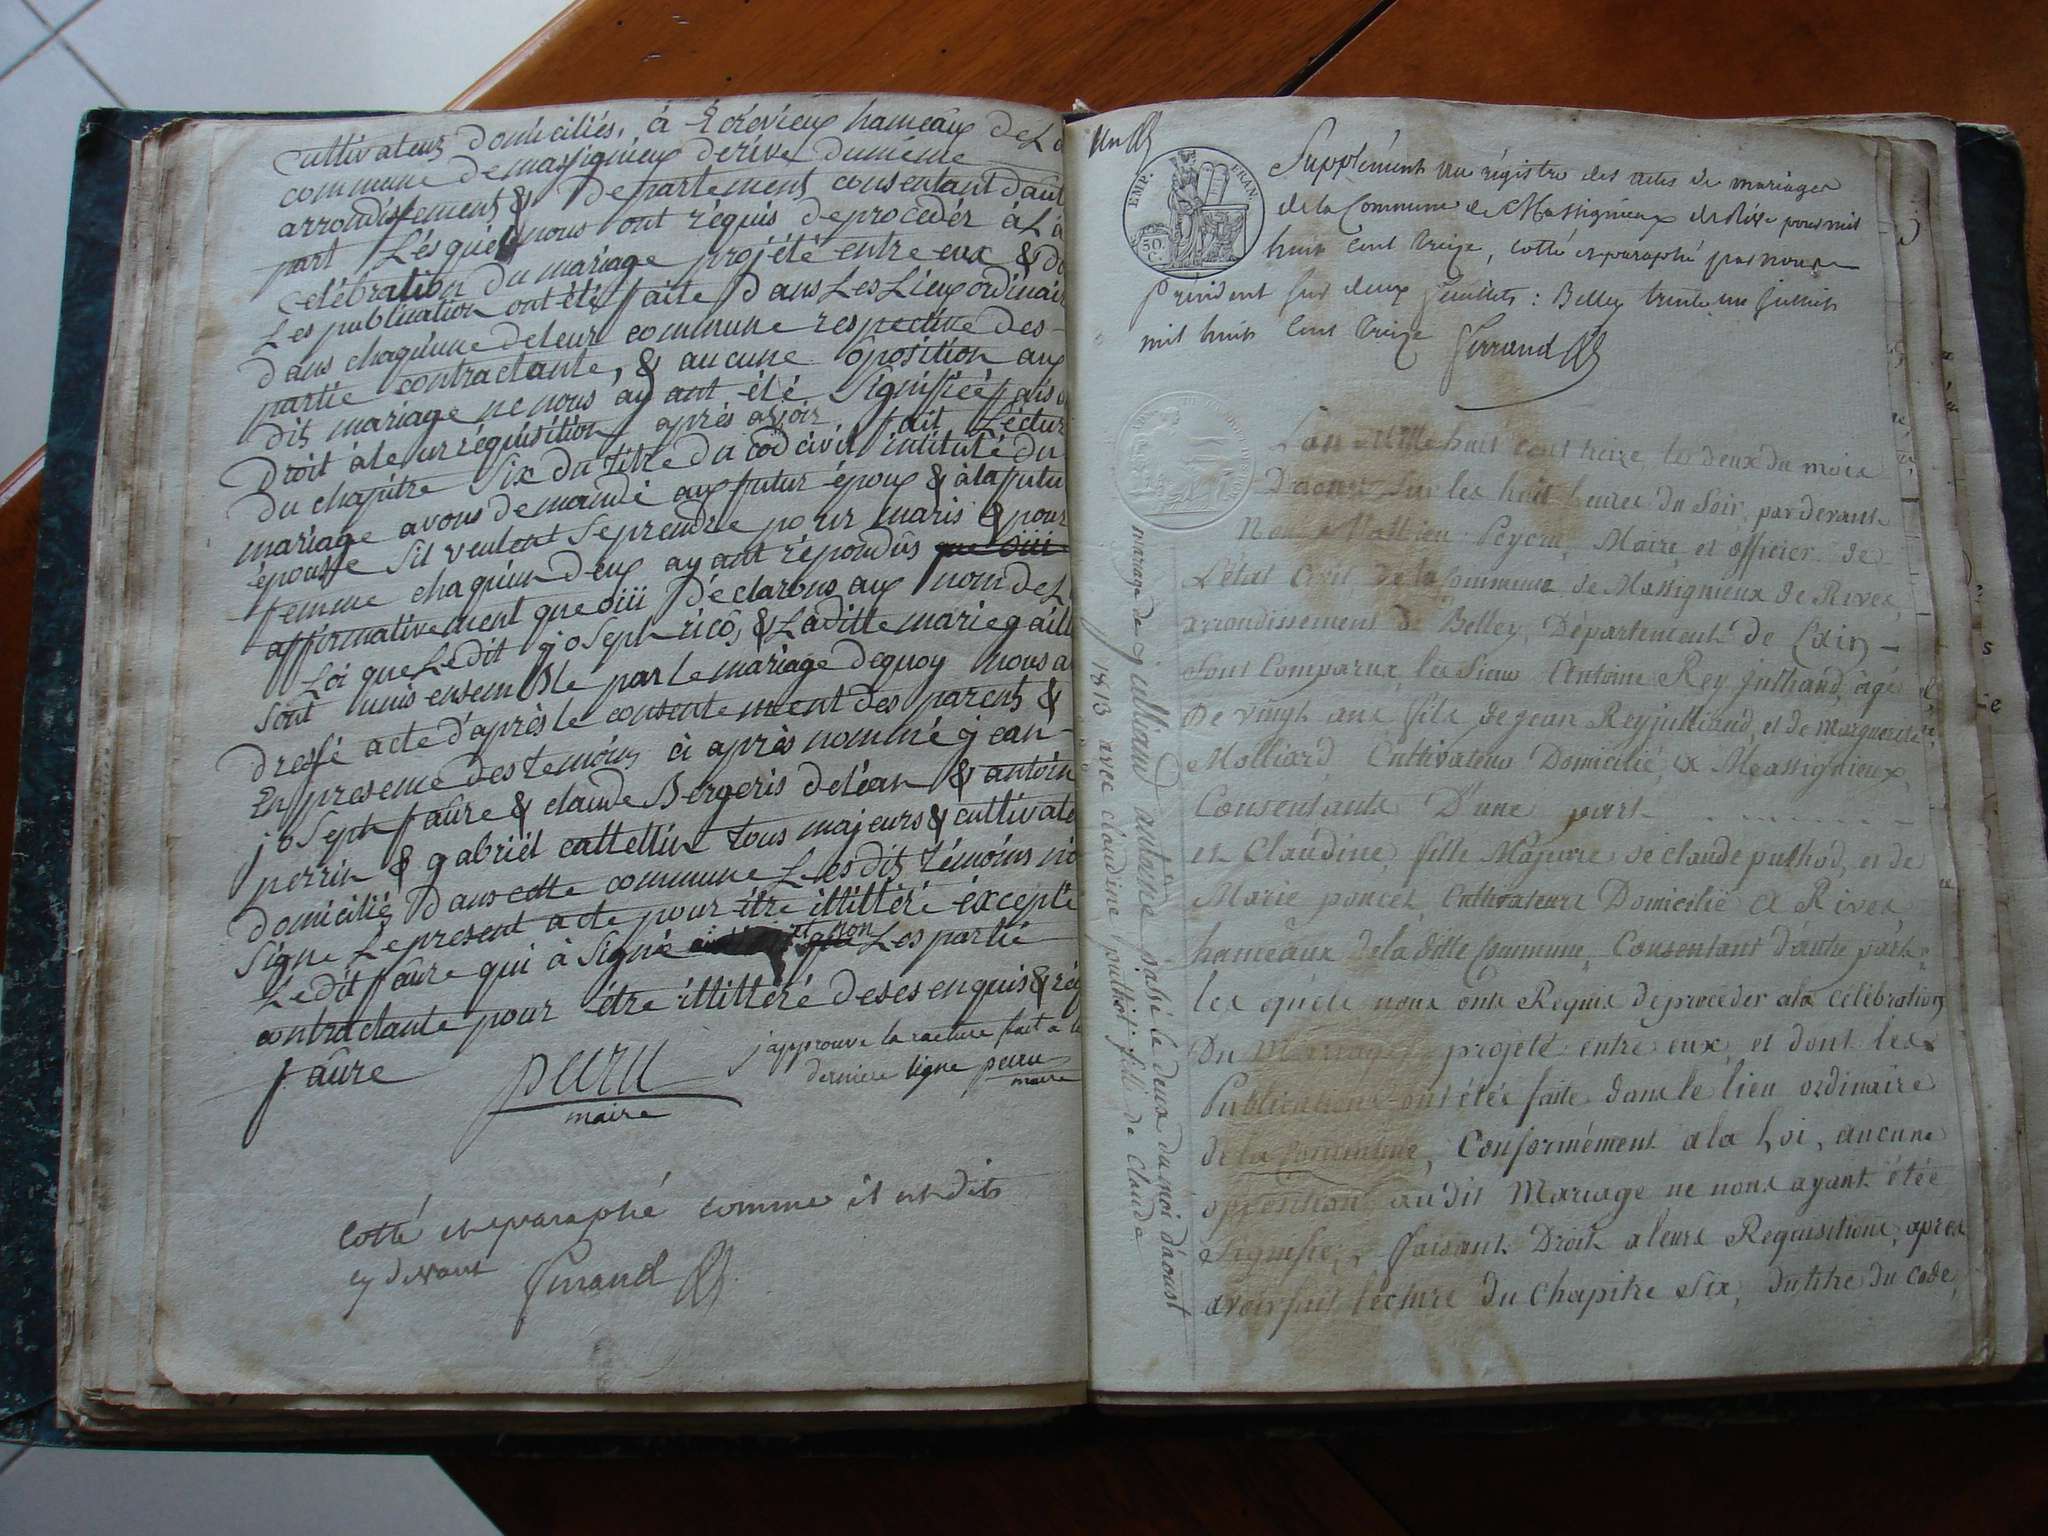 cultivateur domiciliés, à Ecrévieux hameaux de La
commune de massignieux derive dumême
arrondissement & departement consentant daut
part Lésquel nous ont réquis deprocédér à La
celébration du mâriage projété entre eux & do
Les publication ont été faite Dans Les Lieux ordinair
dans chaquune de leur commune respective des-
partie contractante, & aucune oposition aux
dits mariage ne nous ayant été signifféé fais
Droit à leur réquisition après avoir fait Léctur
du chapitre Six du titre du cod civil intitulé du
mâriage avons demandé aux futur époux & à la futu
épousse Sil veulent se prendre pour maris & pour
femme chaquun deux ayant répondus que oüi
affirmativement que oiii Déclarons aux nom de L
Loi que Ledit joseph rico, & Laditte marie gaill
sont unis ensemble par le mâriage dequoy nous a
dressé acte d'après le consentement des parents &
En presence des temoins ci après nommé jean-
joseph faûre & claude Bergeris de léan & antoin
perrin & gabriél cattellin tous majeurs & cultivate
domiciliés Dans cette commune Les dits témoins no
signe Le present acte pour être illittéré éxcepté
Le dit faûre qui à signé et non Les partie
contractante pour être illittéré deses enquis & réq
faûre peeru maire
j'approuve la racture fait a la
derniere ligne peeru
maire
Cotté et paraphé comme il est dits
cy devant Girrand
Un
EMP. FRAN.
50. C.
Supplément au régistre des actes de mariages
de la Commune de Massignieux de Rive pour mil
huit Cent Treize, cotté et paraphé par nous
Président sur deux feuillets : Belley trente un juillet
mil huit Cent Treize Girrand
mariage de julliand antoine passé le deux du moi d'aoust
1813 avec claudine pulliod fille de claude
Lan Mille huit cent treize, le deux du mois
D'aoust sur les huit heures du Soir, par devant
Nous Mathieu Peyeru, Maire, et officier de
L'état Civil de la Commune de Massignieux de Rives,
arrondissement de Belley, Département de L'ain –
Sont Comparux, les Sieur Antoine Rey julliand, agé
De vingt ans fils de jean Rey julliand, et de Marguerite
Molliard Cultivateur Domicilié, a Massignieux
Consentante D'une part
et Claudine, fille Majeure de claude pulliod, et de
Marie poncet, Cultivateurs Domicilié a Rives
hameaux de la ditte Commune, Consentant d'autre part
les quéls nous ont Requis de procéder a la Célébration
Du Mariage projeté entre eux, et dont les
Publications ont étés faite dans le lieu ordinaire
de la Commune, Conformément a la Loi, aucune
opposition audit Mariage ne nous ayant étée
Signifiez, faisant Droit a leurs Requisitions, apres
avoir fait lecture du Chapitre Six, du titre du code,